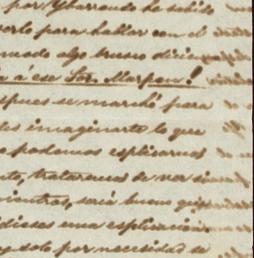 por Ybarrondo he sabido
verlo para hablar con el
mado algo bueno dicien
a á ese Sor. Marpou!
spues se marchó para
des imaginarte lo que
podamos esplicarnos
to, trataremos de ver si
mientras, será bueno que
dieses una esplicación.
y solo por necesidad se